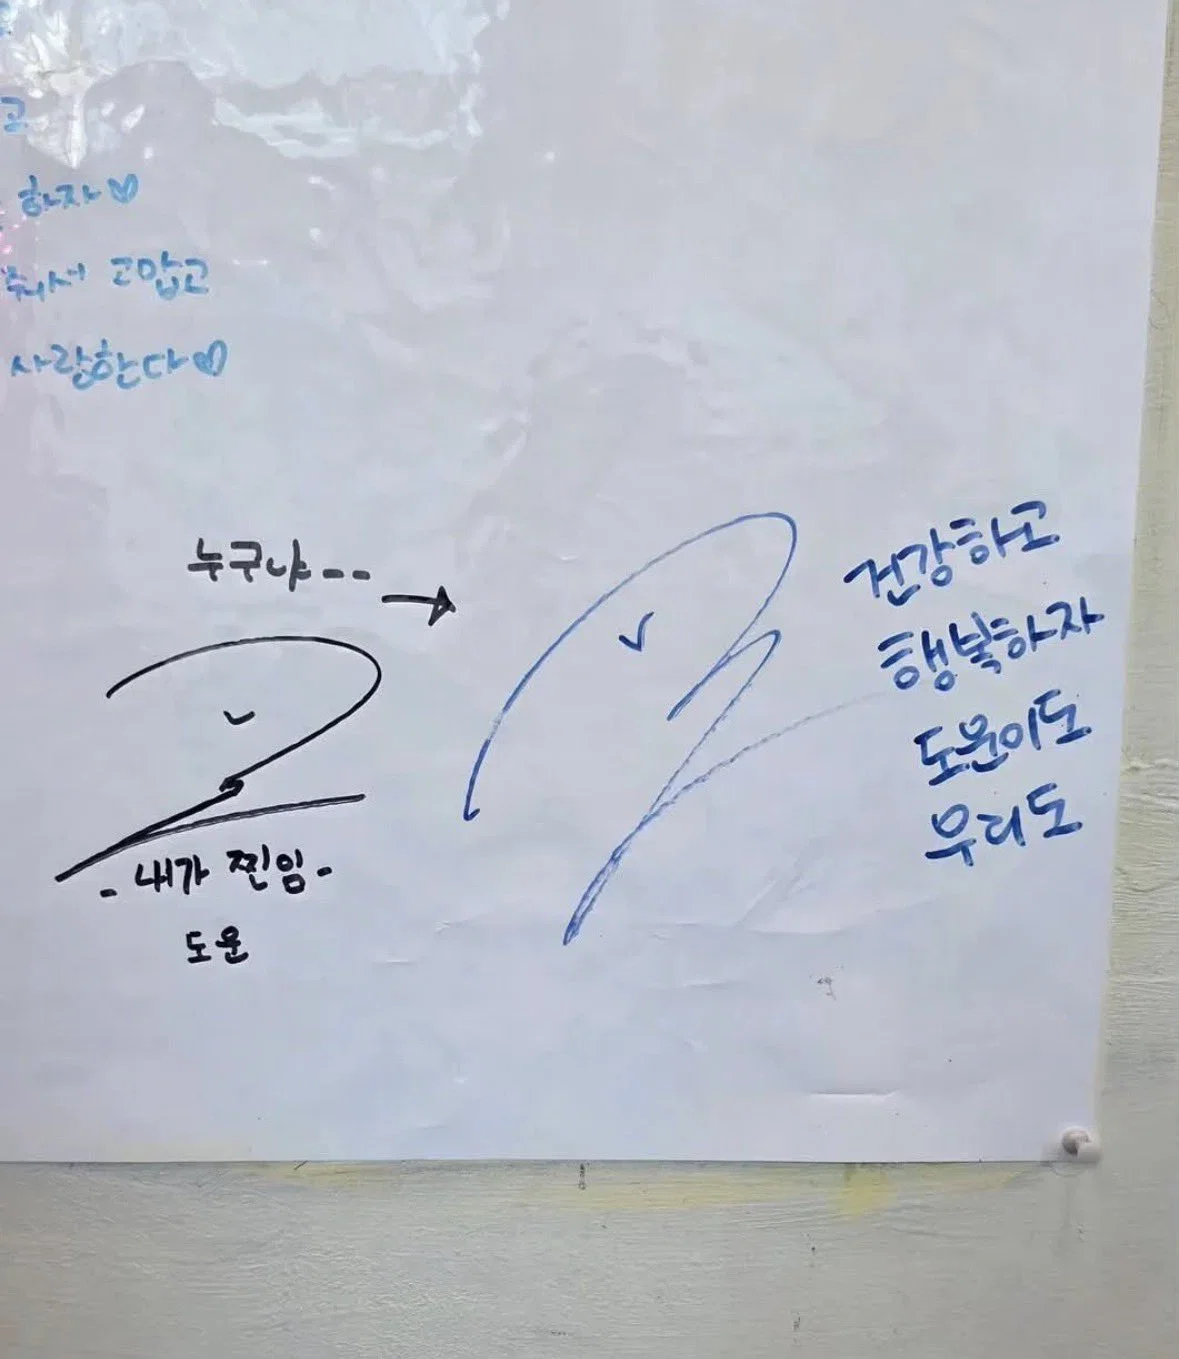 고
하자♡
줘서 고맙고
사랑한다♡
누구냐--
→
-내가 찐임-
도운
건강하고
행복하자
도운이도
우리도